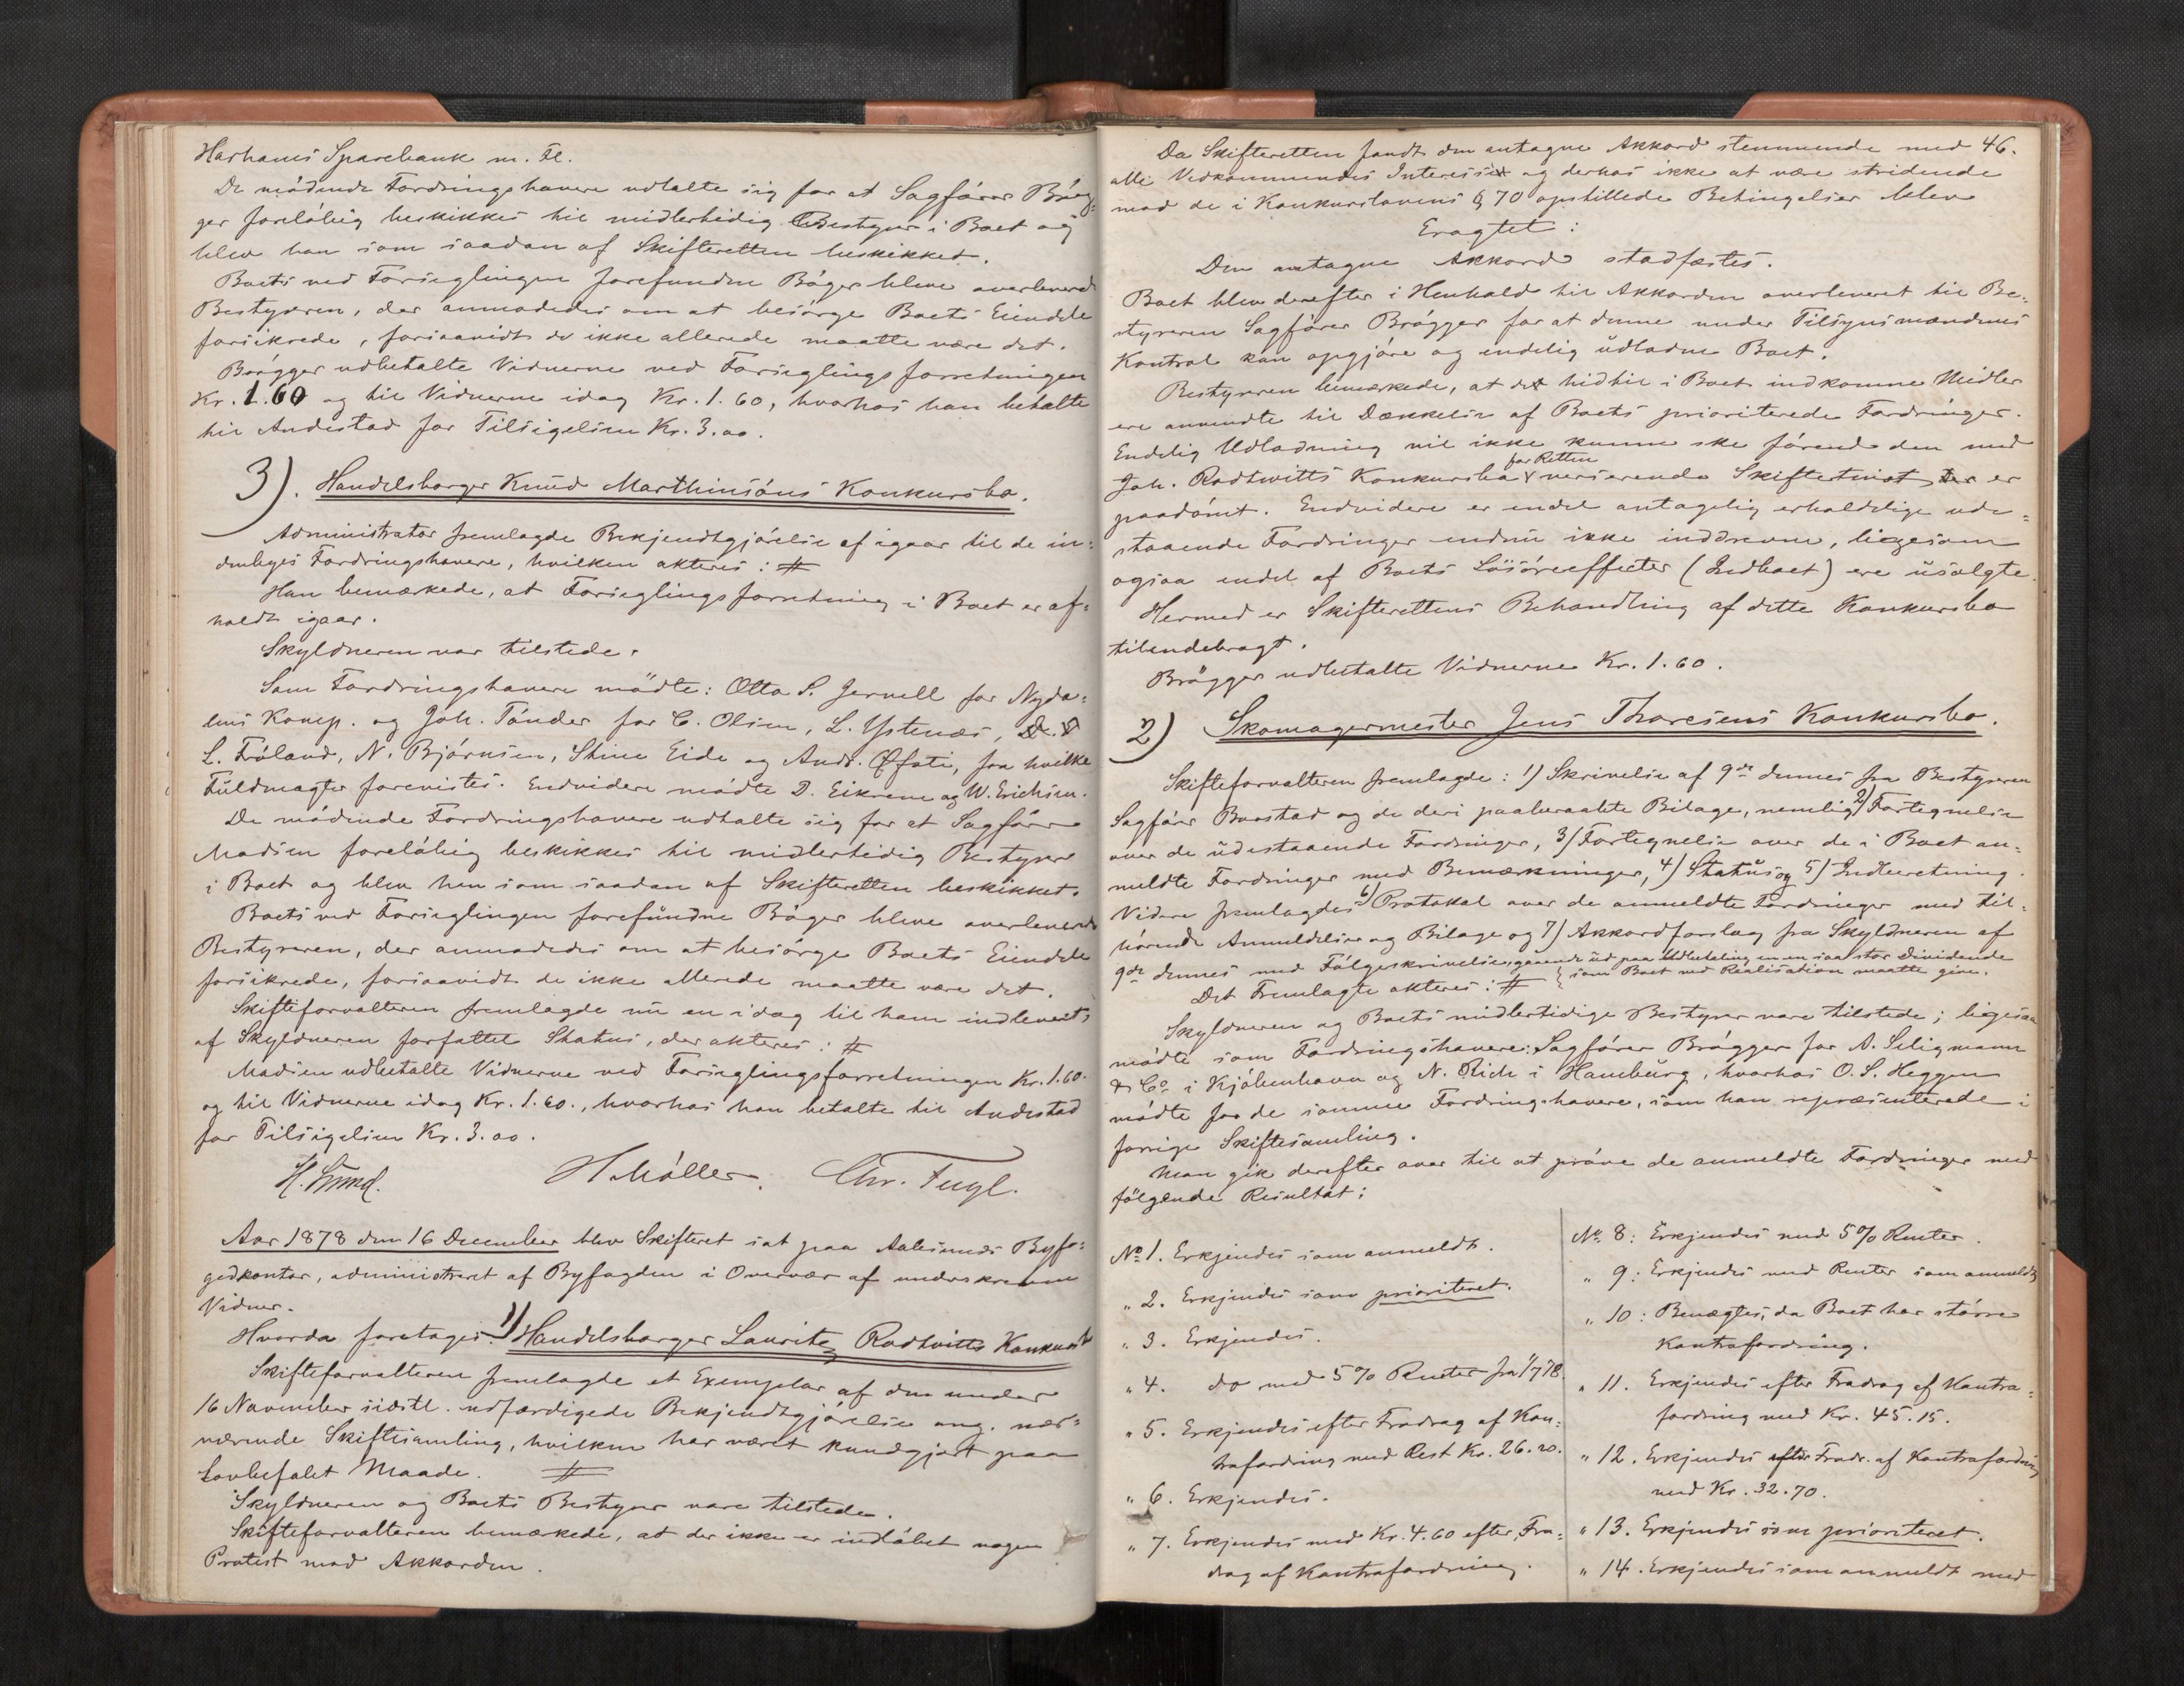 Harhams Sparebank m. Fl.
De mödende Fordringshavere udtalte sig for at Sagförer Brög-
ger forelöbig beskikkes til midlertidig Bestyrer i Boet og
blev han som saadan af Skifteretten beskikket.
Boets ved Forseglingen forefundne Böger bleve overleveret
Bestyreren, der anmodedes om at besörge Boets Eiendele
forsikrede, forsaavidt de ikke allerede maatte være det.
Brögger udbetalte Vidnerne ved Forseglingsforretningen
Kr. 1.60 og til Vidnerne idag Kr. 1.60, hvorhos han betalte
til Andestad for Tilsigelsen Kr. 3.00.
3). Handelsborger Knud Marthinsöns Konkursbo.
Administrator fremlagde Bekjendtgjörelse af igaar til de in-
denbyes Fordringshavere, hvilken akteres: #
Han bemærkede, at Forseglingsforretning i Boet er af-
holdt igaar.
Skyldneren var tilstede.
Som Fordringshavere mödte: Otto S. Jervell for Nyda-
lens Komp. og Joh. Tönder for C. Olsen, L. Ystenæs,
L. Fröland, N. Björnsen, Stine Eide og Andr. Öfsti, fra hvilke
Fuldmagter forevistes. Endvidere mödte D. Eikrem og W. Erichsen.
De mödende Fordringshavere udtalte sig for at Sagförer
Madsen forelöbig beskikkes til midlertidig Bestyrer
i Boet og blev han som saadan af Skifteretten beskikket.
Boets ved Forseglingen forefundne Böger bleve overleveret
Bestyreren, der anmodedes om at besörge Boets Eiendele
forsikrede, forsaavidt de ikke allerede maatte være det.
Skifteforvalteren fremlagde nu en idag til ham indleveret,
af Skyldneren forfattet Status, der akteres: #
Madsen udbetalte Vidnerne ved Forseglingsforretningen Kr. 1.60.
og til Vidnerne idag Kr. 1.60., hvorhos han betalte til Andestad
for Tilsigelsen Kr. 3.00.
H. Lund. H. Möller. Chr. Fugl.
Aar 1878 den 16 December blev Skifteret sat paa Aalesunds Byfo-
gedkontor, administreret af Byfogden i Overvær af underskrevne
Vidner.
Hvorda foretoges: 1) Handelsborger Lauritz Rødtvitts Konkursb
Skifteforvalteren fremlagde et Exemplar af den under
16 November sidstl. udfærdigede Bekjendtgjörelse ang. nær-
værende Skiftesamling, hvilken har været kundgjort paa
lovbefalet Maade. #
Skyldneren og Boets Bestyrer vare tilstede.
Skifteforvalteren bemærkede, at der ikke er indlöbet nogen
Protest mod Akkorden.
46.
Da Skifteretten fandt den antagne Akkord stemmende med
alle Vedkommendes Interesse og derhos ikke at være stridende
mod de i Konkurslovens § 70 opstillede Betingelser blev
Eragtet:
Den antagne Akkord stadfæstes.
Boet blev derefter i Henhold til Akkorden overleveret til Be-
styreren Sagförer Brögger for at denne under Tilsynsmændenes
Kontrol kan opgjöre og endelig udlodne Boet.
Bestyreren bemærkede, at de hidtil i Boet indkomne Midler
ere anvendte til Dækkelse af Boets prioriterede Fordringer.
Endelig Udlodning vil ikke kunne ske förend den med
for Retten
Joh. Rødtvitts Konkursbo verserende Skiftetvist er
paadömt. Endvidere er endel antagelig erholdelige ude-
staaende Fordringer endnu ikke inddrevne, ligesom
ogsaa endel af Boets Lösöreeffecter (Indboet) ere usolgte.
Hermed er Skifterettens Behandling af dette Konkursbo
tilendebragt.
Brögger udbetalte Vidnerne Kr. 1.60.
2) Skomagermester Jens Thoresens Konkursbo.
Skifteforvalteren fremlagde: 1) Skrivelse af 9de dennes fra Bestyreren
Sagförer Bonstad og de deri paaberaabte Bilage, nemlig 2) Fortegnelse
over de udestaaende Fordringer, 3) Fortegnelse over de i Boet an-
meldte Fordringer med Bemærkninger, 4) Status og 5) Indberetning.
Videre fremlagdes 6) Protokol over de anmeldte Fordringer med til-
hörende Anmeldelser og Bilage og 7) Akkordforslag fra Skyldneren af
9de dennes med Fölgeskrivelse, gaaende ud paa Udbetaling en en saa stor Dividende
som Boet ved Realisation maatte give.
Det Fremlagte akteres: #
Skyldneren og Boets midlertidige Bestyrer vare tilstede; ligesaa
mödte som Fordringshavere: Sagförer Brögger for A. Seligmann
& Co. i Kjöbenhavn og N. Rich i Hamburg, hvorhos O. S. Heggen
mödte for de samme Fordringshavere, som han repræsenterede i
forrige Skiftesamling.
Man gik derefter over til at pröve de anmeldte Fordringer med
fölgende Resultat:
No 1. Erkjendes som anmeldt.
" 2. Erkjendes som prioriteret.
" 3. Erkjendes.
" 4. do med 5% Renter fra 1/7 78.
" 5. Erkjendes efter Fradrag af Kon-
trafordring med Rest Kr. 26.20.
" 6. Erkjendes.
" 7. Erkjendes med Kr. 4.60 efter Fra-
drag af Kontrafordring.
No 8: Erkjendes med 5% Renter.
" 9: Erkjendes med Renter som anmeldt
" 10: Benægtes, da Boet har större
Kontrafordring.
" 11. Erkjendes efter Fradrag af Kontra-
fordring med Kr. 45.15.
" 12. Erkjendes efter Fradr. af Kontrafordring
med Kr. 32.70.
" 13. Erkjendes som prioriteret.
" 14. Erkjendes som anmeldt med